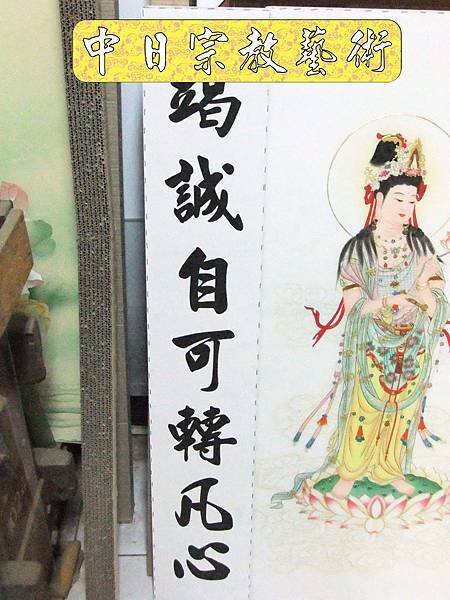 中日宗教藝術
竭誠自可轉凡心